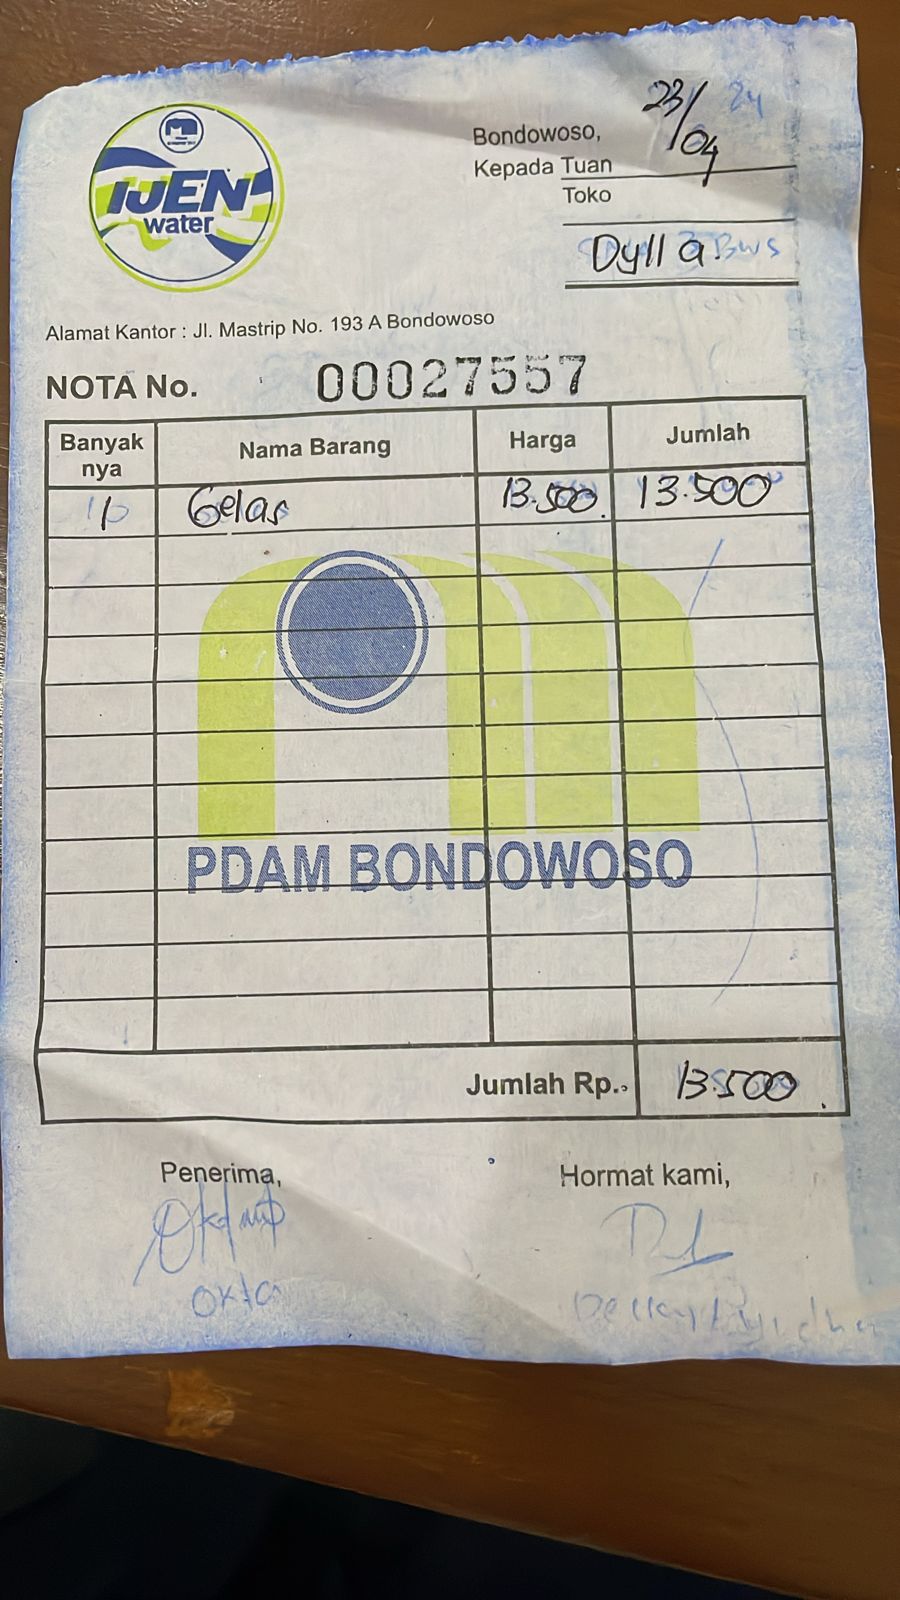 IJEN
water
Bondowoso, 23/04 24
Kepada Tuan
Toko
Dylla. Bws
Alamat Kantor : Jl. Mastrip No. 193 A Bondowoso
NOTA No. 00027557
Banyak nya Nama Barang Harga Jumlah
1 Gelas 13.500 13.500
PDAM BONDOWOSO
Jumlah Rp. 13.500
Penerima, Hormat kami,
Okta